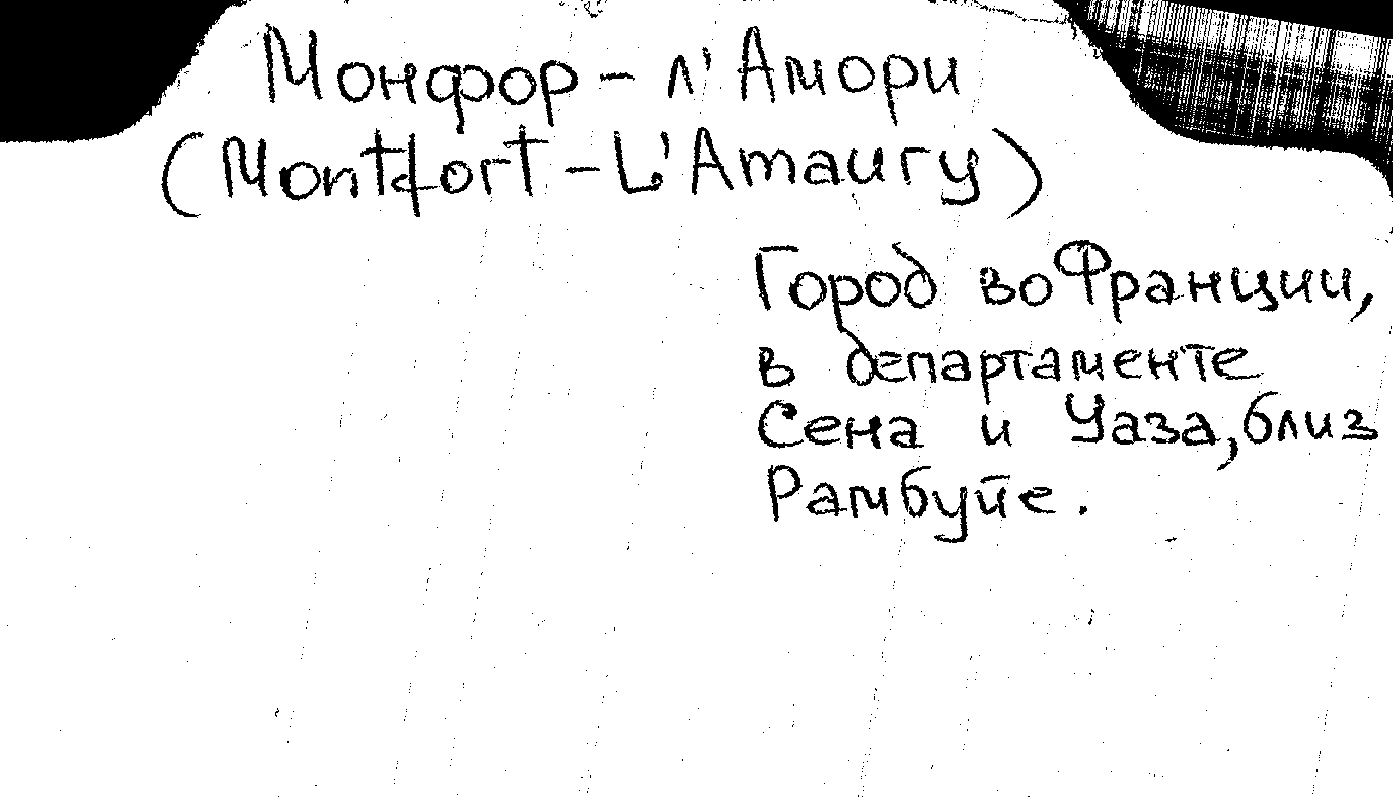 Монфор - л'Амори
(Montfort - L'Amaury)
Город во Франции,
в департаменте
Сена и Уаза, близ
Рамбуйе.